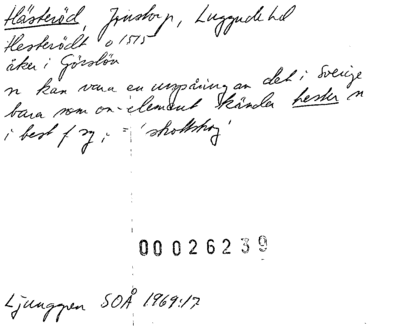 Hästeröd, Jonstorp, Luggude hd
Hesterödt o 1515
åker i Görslöv
n kan vara en urspårning av det i Sverige
bara som on-element kända hester n
i best f sg, = 'skottskog'
00026239
Ljunggren SOÅ 1969:17